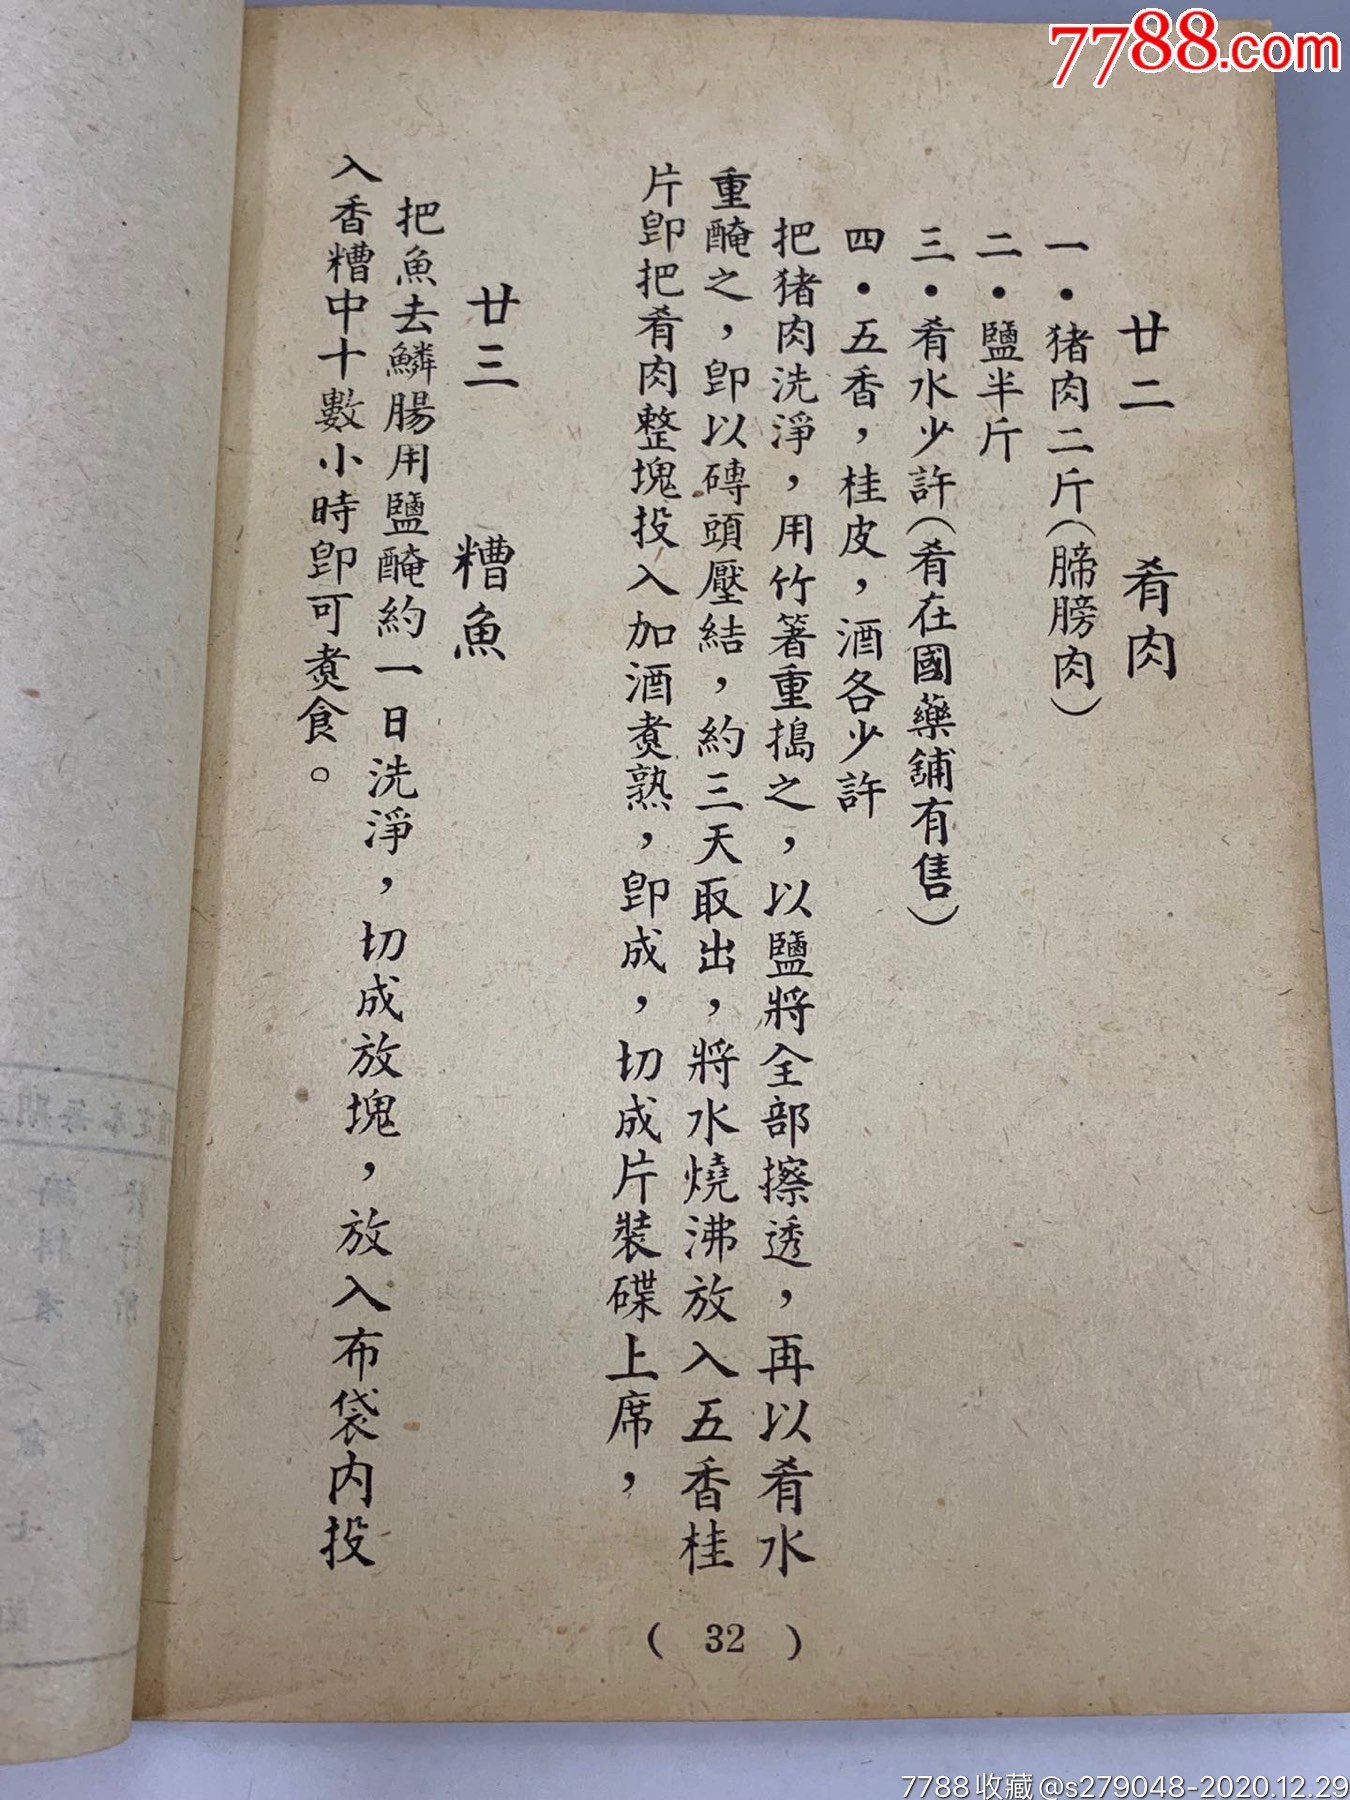 7788.com
廿二　肴肉
一・猪肉二斤（腣膀肉）
二・鹽半斤
三・肴水少許（肴在國藥舖有售）
四・五香，桂皮，酒各少許
把猪肉洗淨，用竹箸重搗之，以鹽將全部擦透，再以肴水
重醃之，卽以磚頭壓結，約三天取出，將水燒沸放入五香桂
片卽把肴肉整塊投入加酒煑熟，卽成，切成片裝碟上席，
廿三　糟魚
把魚去鱗腸用鹽醃約一日洗淨，切成放塊，放入布袋内投
入香糟中十數小時卽可煑食。
( 32 )
7788收藏@s279048-2020.12.29